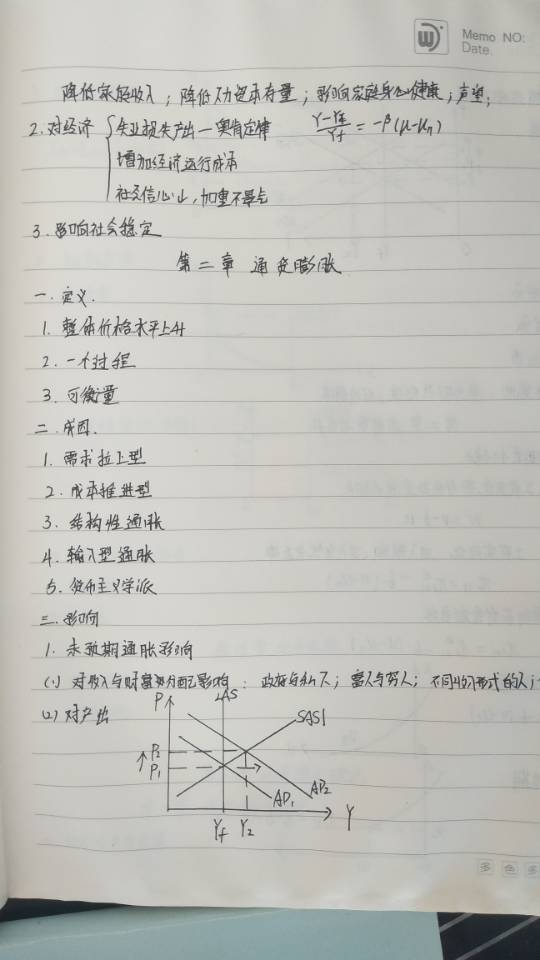 Memo NO:
Date.
降低家庭收入；降低人力资本存量；影响家庭身心健康；声望；
2. 对经济 { 失业损失产出—奥肯定律 (Y-Yf)/Yf = -β(μ-μn)
增加经济运行成本
社交信心
3. 影响社会稳定
第二章 通货膨胀
一. 定义.
1. 整体价格水平上升
2. 一个过程
3. 可衡量
二. 成因.
1. 需求拉上型
2. 成本推进型
3. 结构性通胀
4. 输入型通胀
5. 货币主义学派
三. 影响
1. 未预期通胀影响
(1) 对收入与财富分配影响：政府与私人；富人与穷人；不同收入形式的人；
(2) 对产出
P LAS SAS1
↑ P2
P1
AD1 AD2
Yf Y2 Y
多 色 多